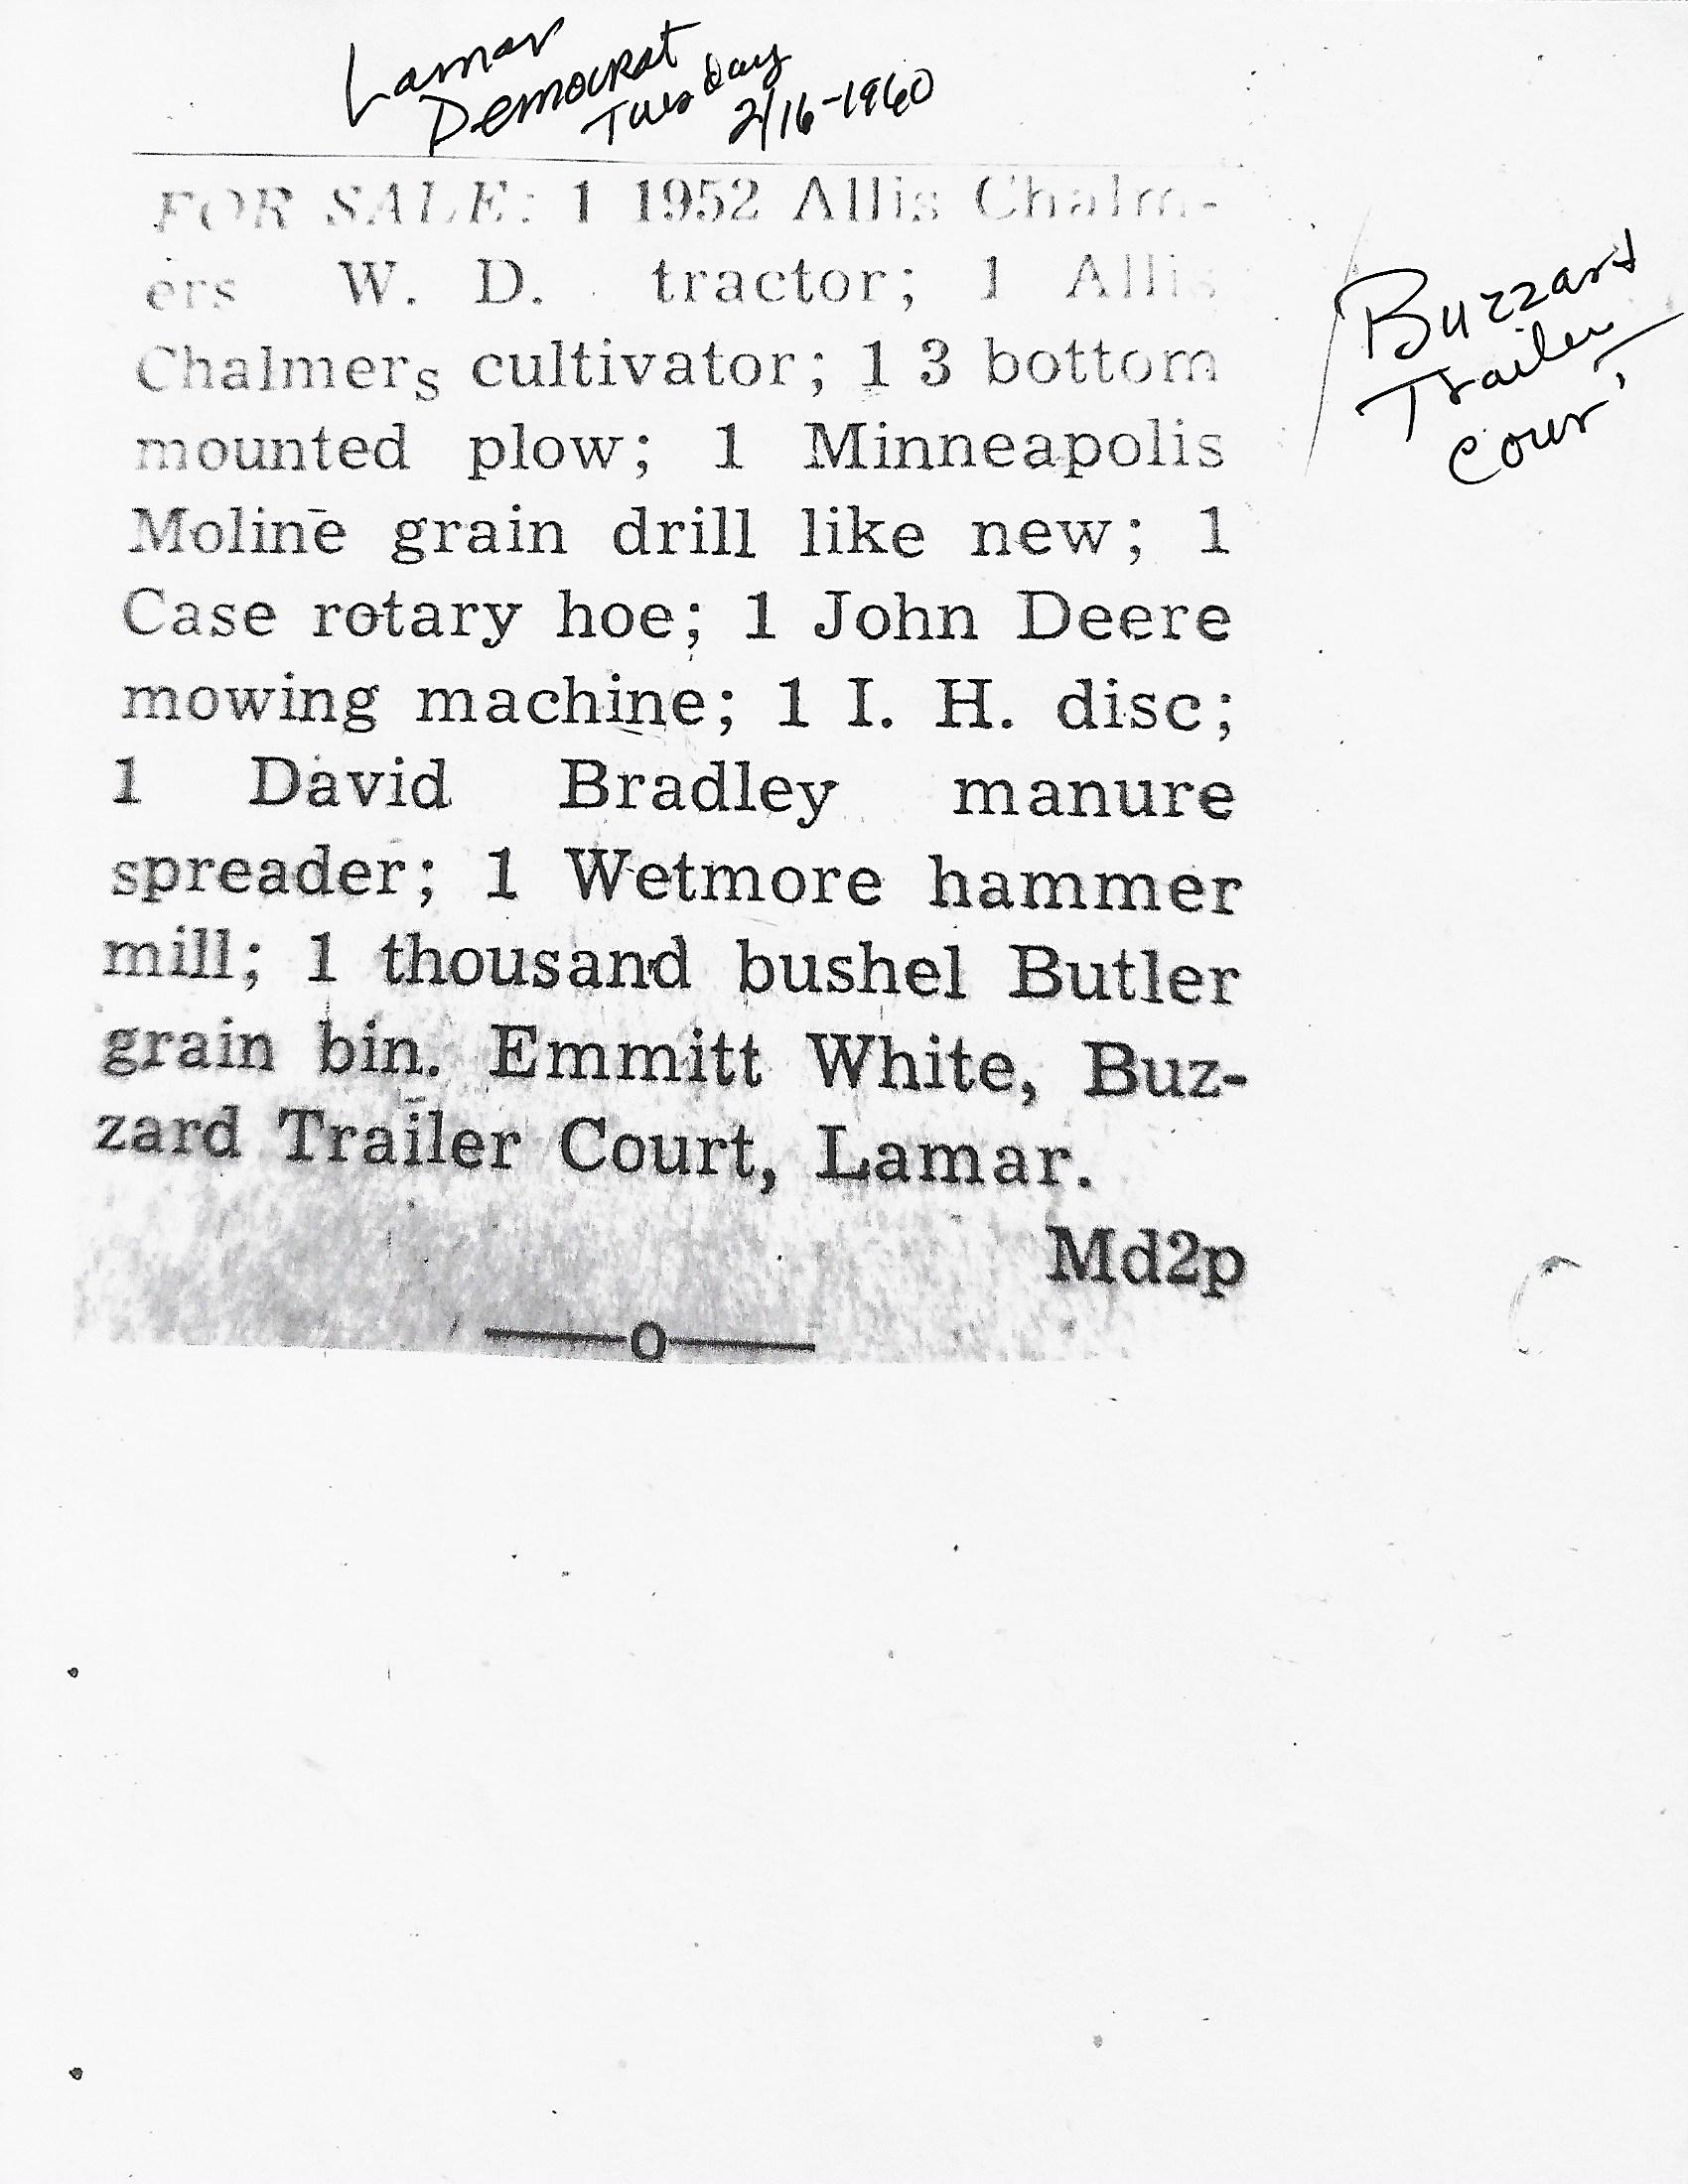 Lamar
Democrat
Tuesday
2/16-1960
FOR SALE: 1 1952 Allis Chalm-
ers W. D. tractor; 1 Allis
Chalmers cultivator; 1 3 bottom
mounted plow; 1 Minneapolis
Moline grain drill like new; 1
Case rotary hoe; 1 John Deere
mowing machine; 1 I. H. disc;
1 David Bradley manure
spreader; 1 Wetmore hammer
mill; 1 thousand bushel Butler
grain bin. Emmitt White, Buz-
zard Trailer Court, Lamar.
Md2p
—o—
Buzzard
Trailer
Court